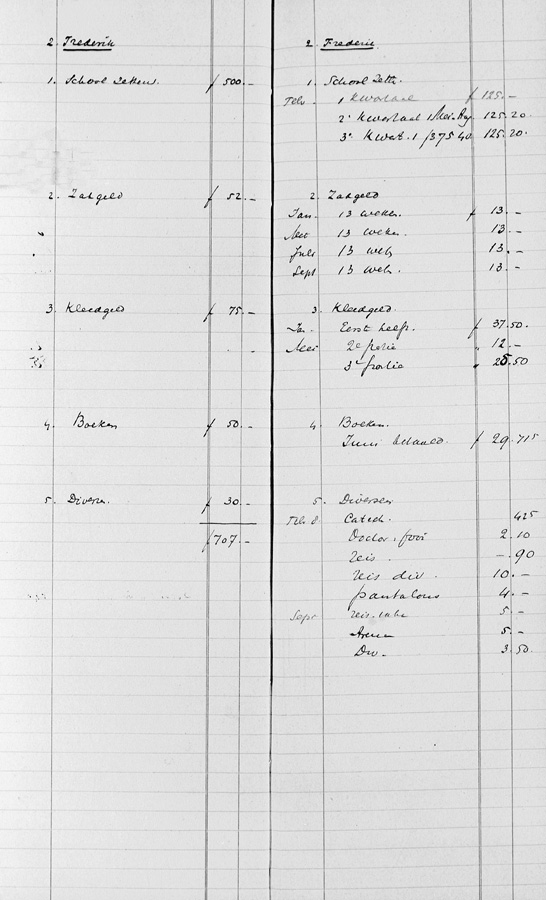 2. Frederik
1. School f 500.-
2. Zakgeld f 52.-
3. Kleedgeld f 75.-
4. Boeken f 50.-
5. Diversen f 30.-
f 707.-
2. Frederik
1. School
Feb. 1 Kwartaal f 125.-
2e Kwartaal 125.20
3e Kwart. f 375.40 125.20
2. Zakgeld
Jan. 13 weken f 13.-
Mei 13 weken 13.-
Juli 13 wek. 13.-
Sept 13 wek. 13.-
3. Kleedgeld
Jan. Eerst helft f 37.50
Mei 2e portie " 12.-
3e portie " 25.50
4. Boeken.
Juni betaald. f 29.715
5. Diversen
Catech. 425
Doctor, fooi 2.10
Reis -.90
Reis div. 10.-
pantalons 4.-
Sept reis 5.-
5.-
Div. 3.50